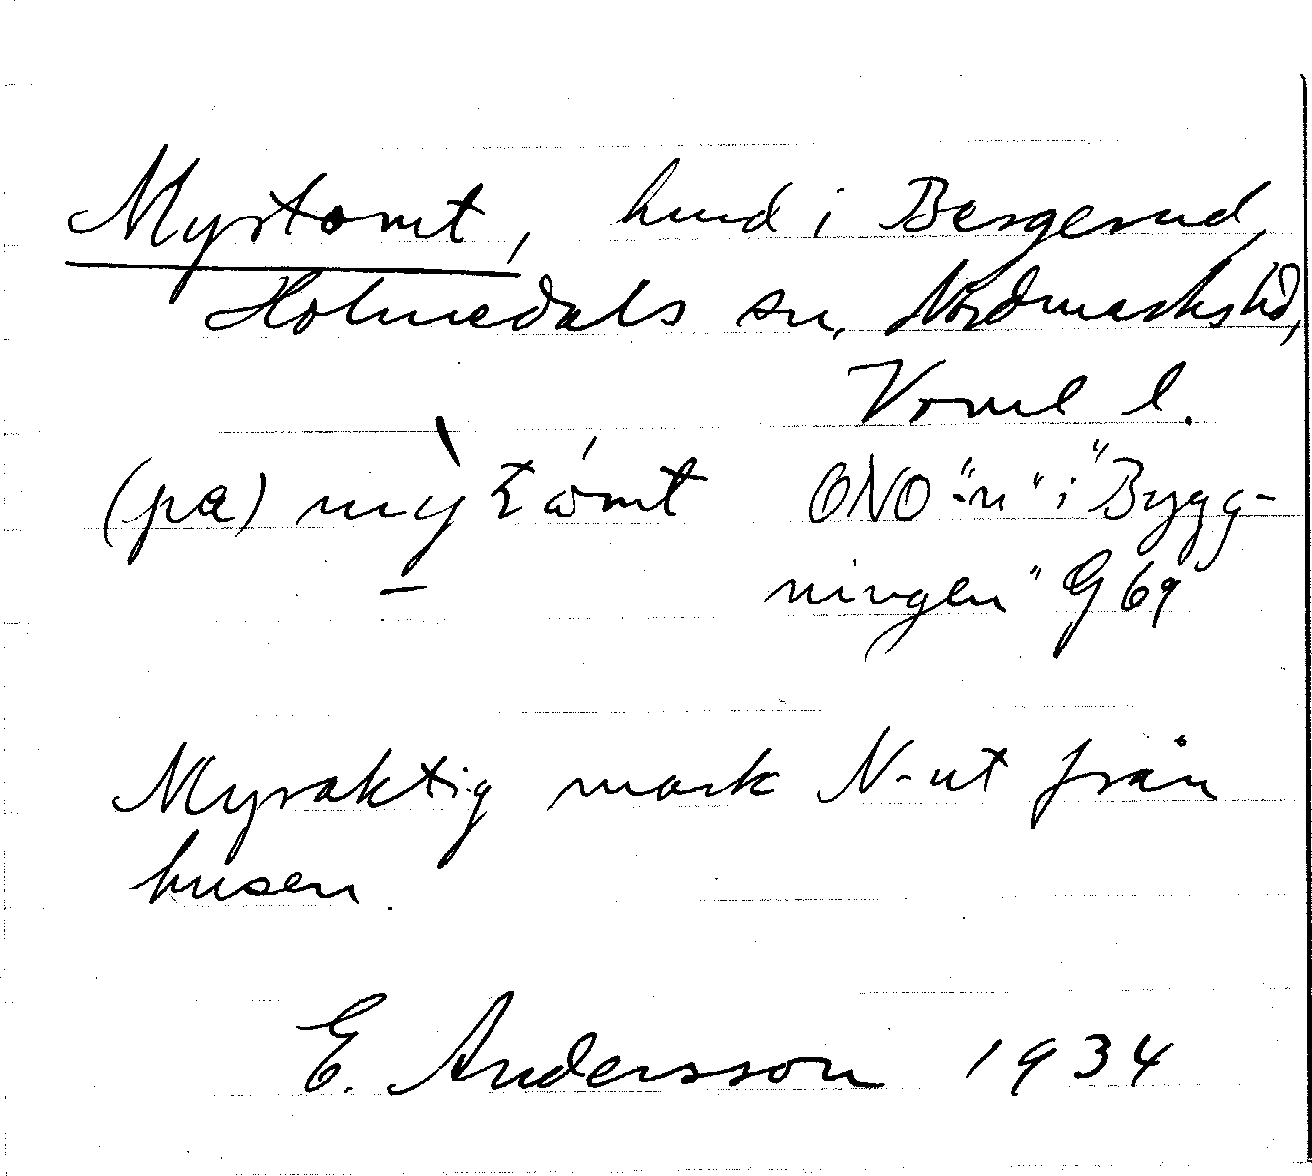 Myrtomt, lund i Bergerud,
Holmedals sn, Nordmarks hd,
Vrml l.
(pa) mỳ tómt ONO "-n" i "Bygg-
ningen" G 69
Myraktig mark N-ut från
husen.
E. Andersson 1934